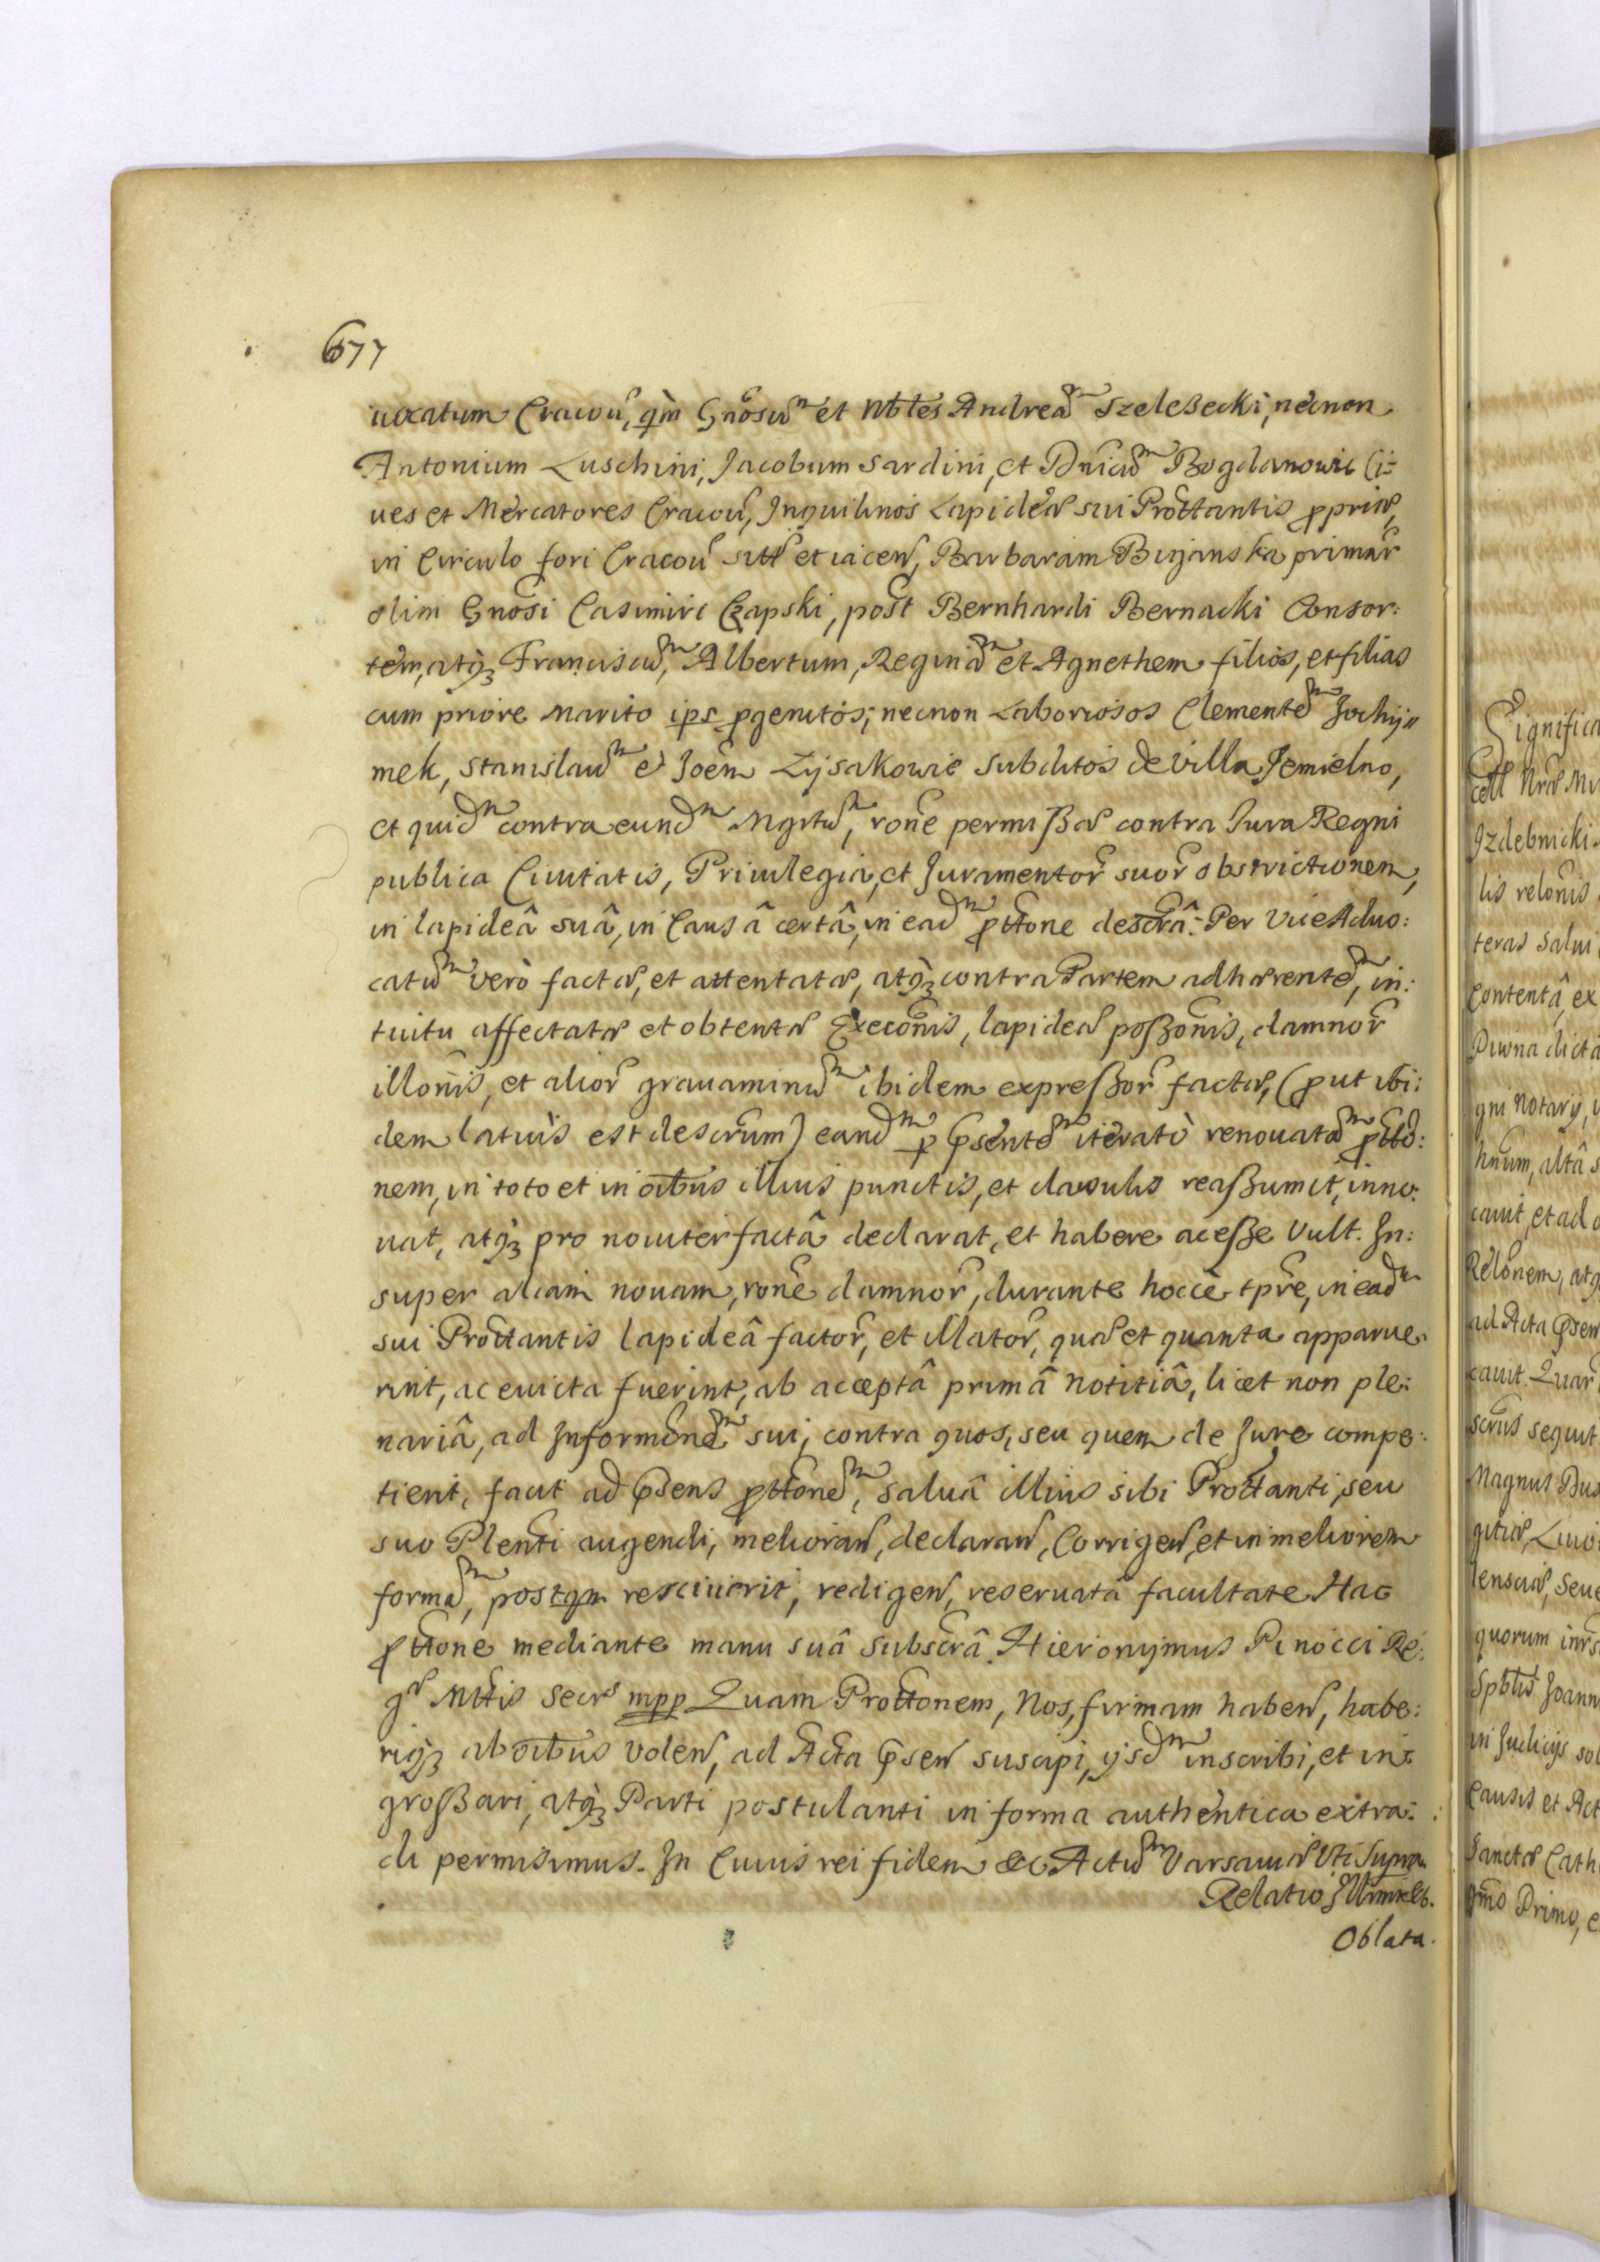 677
uocatum Cracou, qm Gnosum et Nbles Andream Szeleszecki, necnon
Antonium Luschini, Jacobum Sardini, et Dnicum Bogdanowic Ci=
ues et Mercatores Cracou, Inquilinos Lapideæ sui Prottantis propriæ,
in Circulo fori Cracou sitæ et iacen, Barbaram Biganska primær
olim Gnosi Casimiri Czapski, post Bernhardi Bernacki Consor:
tem, atq3 Franciscum, Albertum, Reginam et Agnethem filios, et filias
cum priore Marito ips progenitos; necnon Laboriosos Clementem Jochÿ=
mek, Stanislaum et Joem Lysakowic subditos de Villa Jemielno,
et quidem contra eundem Mgrtum, rone permissæ contra Jura Regni
publica Ciuitatis, Priuilegia, et Juramentor suor obstrictionem,
in lapideâ suâ, in Causâ certâ, in eadem prottone descrâ: Per Vice Aduo:
catum verò factæ, et attentatæ, atq3 contra Partem adhærentem, in:
tuitu affectatæ et obtentæ Execonis, lapideæ poßonis, damnor
illonis, et alior grauaminum ibidem expreßor factæ, (prout ibi:
dem latiùs est descrum) eandem p Psentem iteratò renouatam protto:
nem, in toto et in oibus illius punctis, et clausulis reaßumit, inno:
uat, atq3 pro nouiter factâ declarat, et habere aceße Vult. In:
super aliam nouam, rone damnor, durante hocce tpre, in eadem
sui Prottantis lapideâ factor, et illator, quæ et quanta apparue:
rint, ac euicta fuerint, ab acceptâ primâ notitiâ, licet non ple:
nariâ, ad Informonem sui, contra quos, seu quem de Jure compe:
tierit, facit ad psens prottonem, saluâ illius sibi Prottanti, seu
suo Plenti augendi, melioran, declaran, Corrigen, et in meliorem
formam, postqm resciuerit, redigen, reseruatâ facultate. Hac
prottone mediante manu suâ subscrâ. Hieronymus Pinocci Re:
gæ Mttis Secrs mpp Quam Prottonem, Nos, firmam haben, habe:
riq3 ab oibus volen, ad Acta Psen suscipi, ijsdem inscribi, et in:
großari, atq3 Parti postulanti in forma authentica extra:
di permisimus. In Cuius rei fidem &c Actum Varsauiæ Vti supra.
Relatio
Oblata.
Significa
Izdebnicki
lis relonis
teras salui
contentâ, ex
Piwna dictâ
gni Notary,
hnum, altâ s
cauit, et ad
Relonem, atq
ad Acta Psen
cauit. Quar
scrius sequit
Magnus Dux
lensciæ, Seue
quorum inrs
Joann
in Judicijs
Causis et Act
Sanctæ Cath
Primo,